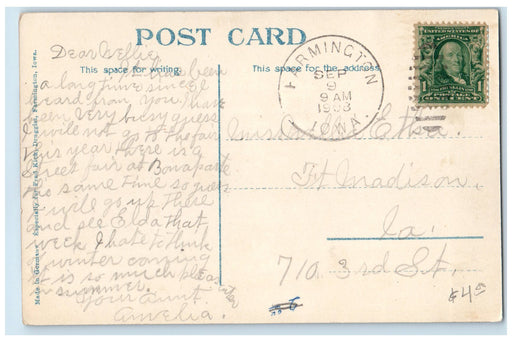 POST CARD
This space for writing.
This space for the address.
Dear Nellie
been
a long time since I
heard from you I have
been very busy guess
I will not go to the fair
this year there is a
street fair at Bonaparte
the same time so guess
I will go up there
and see Elda that
week I hate to think
of winter coming
it is so much
in summer.
your aunt
Amelia.
Made in Germany
Farmington, Iowa.
FARMINGTON
SEP
9
9 AM
IOWA
1
ONE CENT
1
Miss
Ft Madison,
Ia.
710 3rd St.
6
$4.00